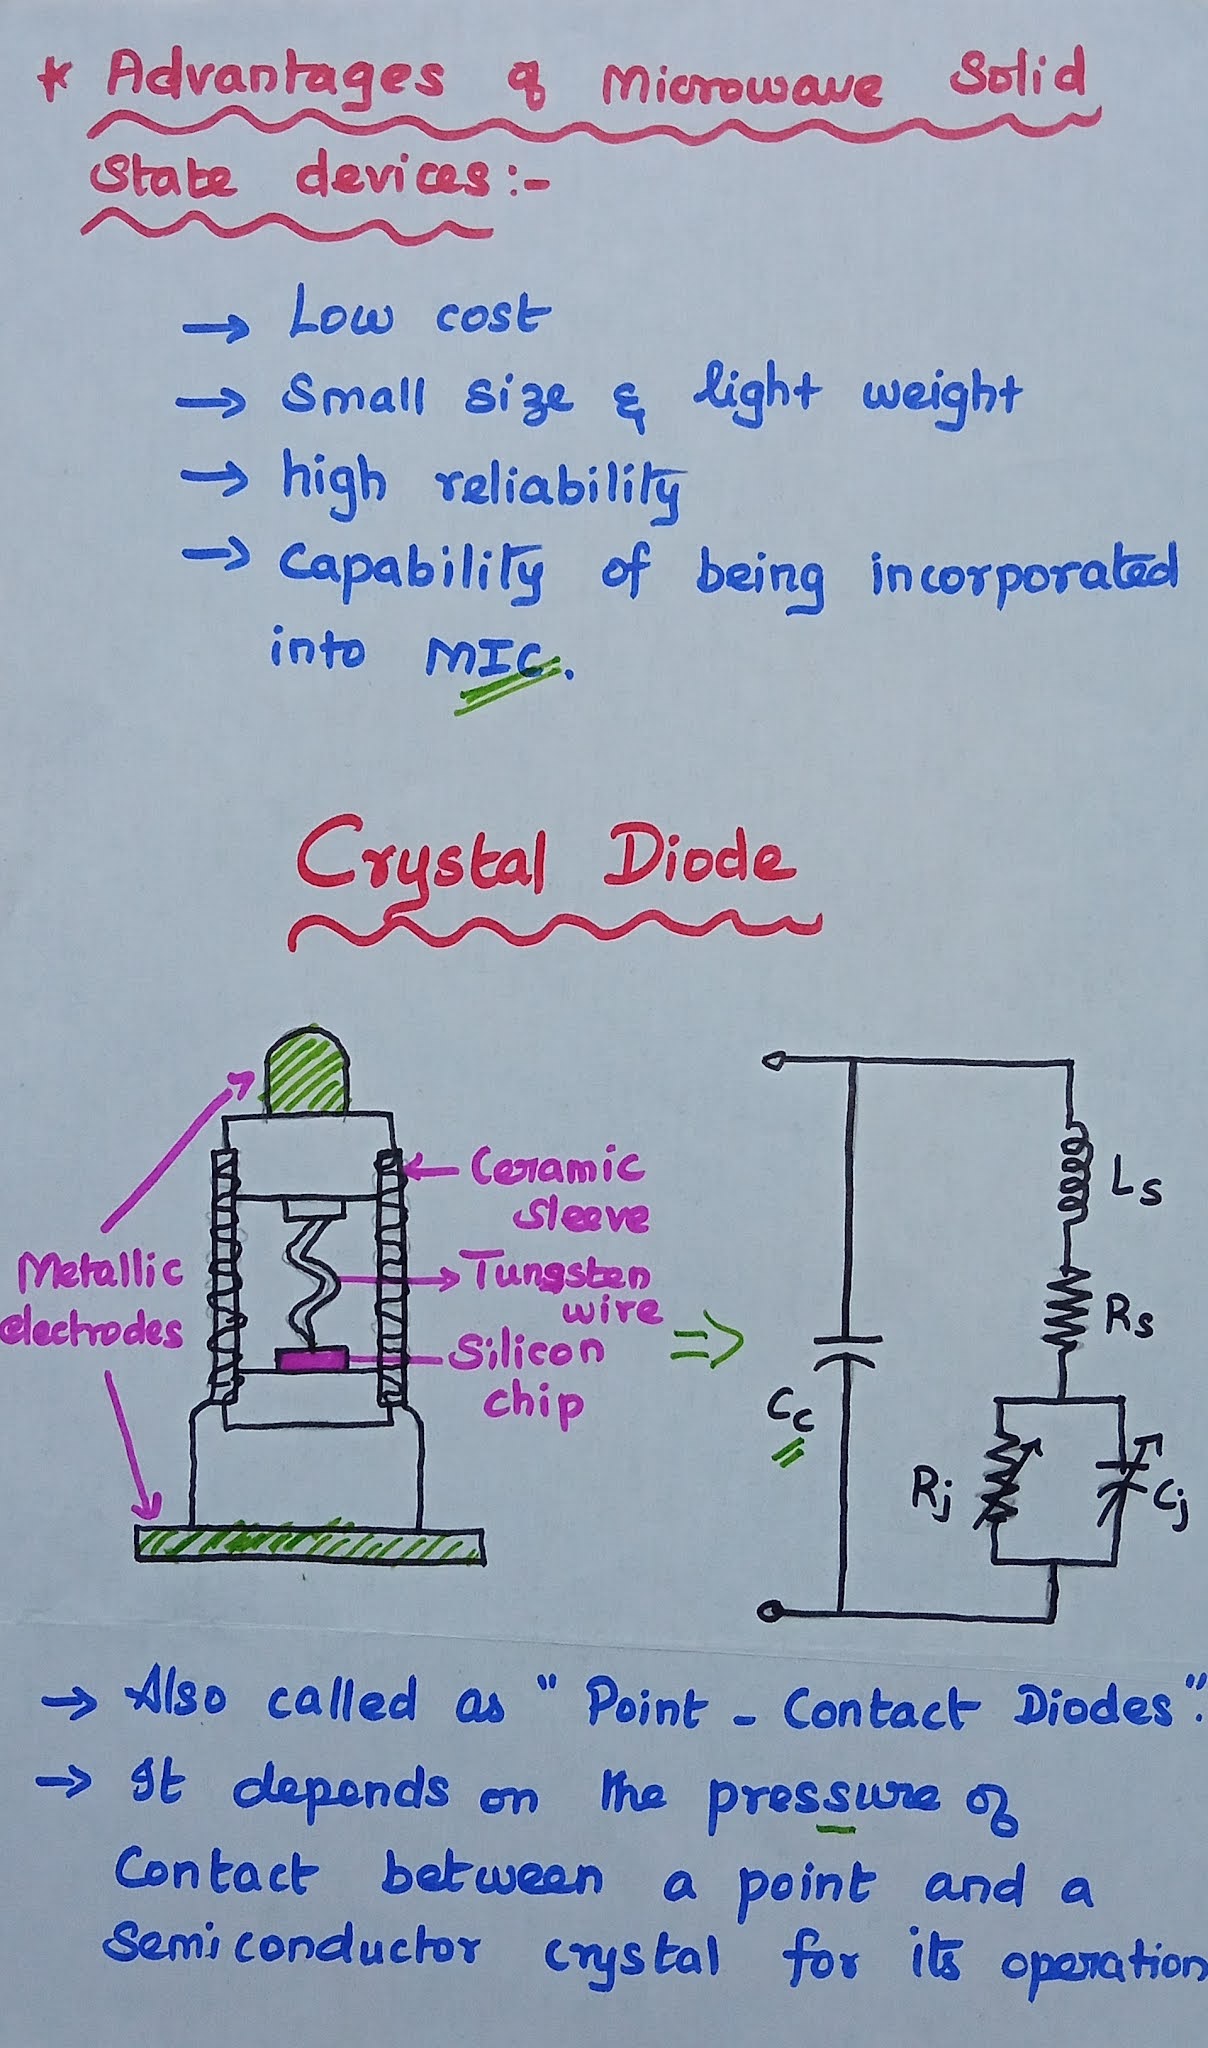 * Advantages of Microwave Solid
State devices:-
→ Low cost
→ Small size & light weight
→ high reliability
→ Capability of being incorporated
into MIC.
Crystal Diode
Ceramic
sleeve
Metallic
electrodes
Tungsten
wire
Silicon
chip
⇒
Ls
Rs
Cc
Rj
Cj
→ Also called as "Point - Contact Diodes".
→ It depends on the pressure of
Contact between a point and a
Semiconductor crystal for its operation